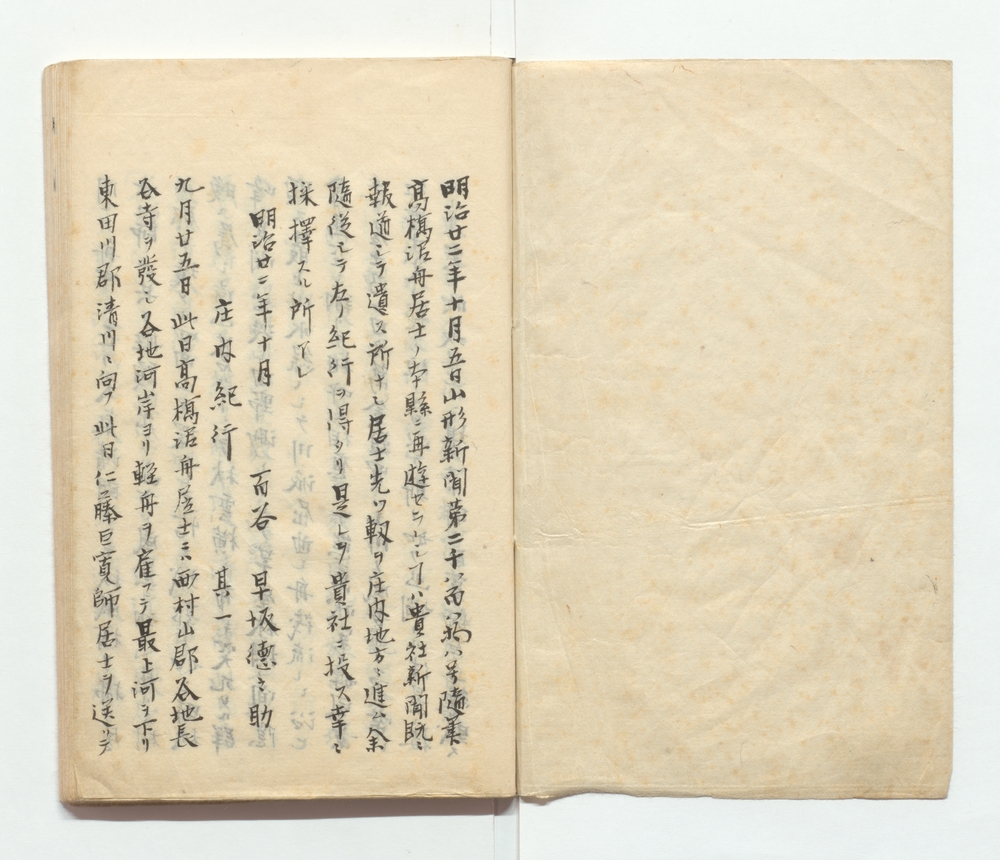 明治廿二年十月五日山形新聞第二千八百八拾八号随筆
高橋泥舟居士ノ本縣ニ再遊セラレシヿハ貴社新聞既ニ
報道シテ遺ス所ナシ居士先ツ軔ヲ庄内地方ニ進ム余
随従シテ左ノ紀行ヲ得タリ是レヲ貴社ニ投ス幸ニ
採擇スル所アレ
明治廿二年十月 西谷 早坂德之助
庄内紀行 其一
九月廿五日此日高橋泥舟居士ニハ西村山郡谷地長
谷寺ヲ發シ谷地河岸ヨリ軽舟ヲ雇フテ最上河ヲ下リ
東田川郡清川ニ向フ此日仁藤巨寛師居士ヲ送リテ